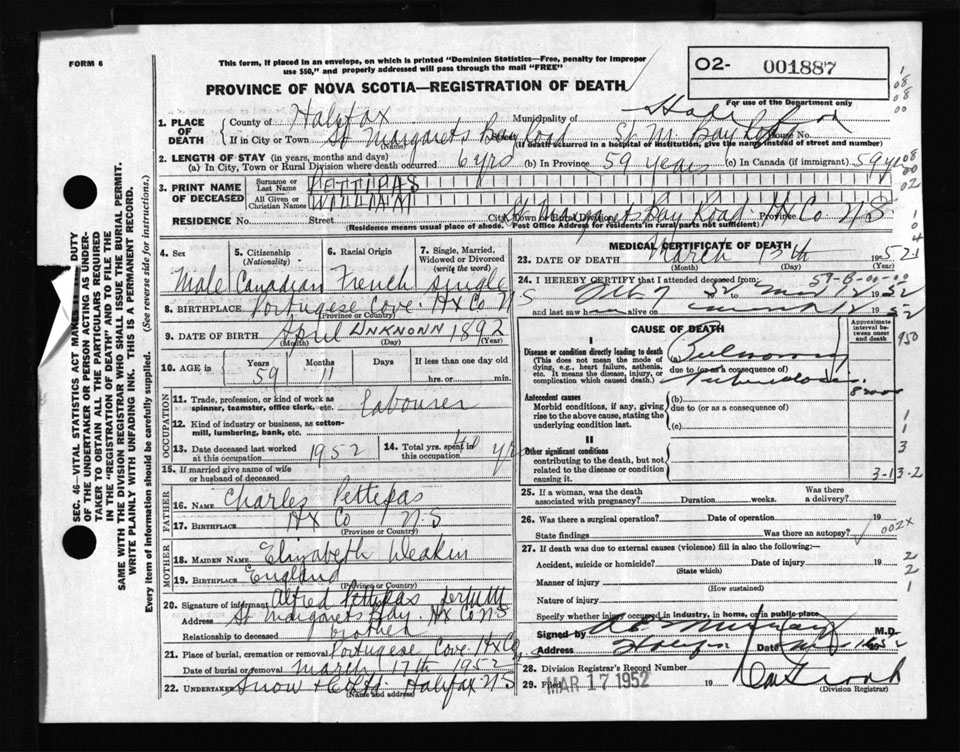 FORM 6
This form, if placed in an envelope, on which is printed "Dominion Statistics—Free, penalty for improper
use $50," and properly addressed will pass through the mail "FREE"
PROVINCE OF NOVA SCOTIA—REGISTRATION OF DEATH
O2- 001887
For use of the Department only
1. PLACE OF DEATH { County of Halifax Municipality of
If in City or Town St Margarets Bay Road St M. Bay Road House No.
(Name) (If death occurred in a hospital or institution, give the name instead of street and number)
2. LENGTH OF STAY (in years, months and days)
(a) In City, Town or Rural Division where death occurred 6 yrs (b) In Province 59 years (c) In Canada (if immigrant) 59 yrs
3. PRINT NAME OF DECEASED { Surname or Last Name PETTIPAS
All Given or Christian Names WILLIAM
RESIDENCE No. Street St Margarets Bay Road Hx Co N S
City, Town or Rural Division Province
(Residence means usual place of abode. Post Office Address for residents in rural parts not sufficient)
4. Sex
5. Citizenship (Nationality)
6. Racial Origin
7. Single, Married, Widowed or Divorced (write the word)
Male Canadian French single
8. BIRTHPLACE Portugese Cove Hx Co N S
(Province or Country)
9. DATE OF BIRTH April UNKNONN 1892
(Month) (Day) (Year)
10. AGE in Years Months Days If less than one day
59 11 hrs. or min.
OCCUPATION
11. Trade, profession, or kind of work as spinner, teamster, office clerk, etc. Labourer
12. Kind of industry or business, as cotton-mill, lumbering, bank, etc.
13. Date deceased last worked at this occupation 1952
14. Total yrs. spent in this occupation 40 yrs
15. If married give name of wife or husband of deceased
FATHER
16. Name Charles Pettipas
17. Birthplace Hx Co N S
(Province or Country)
MOTHER
18. Maiden Name Elizabeth Deakin
19. Birthplace England
(Province or Country)
20. Signature of informant Alfred Pettipas
Address St Margarets Bay Hx Co N S
Relationship to deceased brother
21. Place of burial, cremation or removal Portugese Cove Hx Co
Date of burial or removal March 17th 1952
22. Undertaker Snow & Co Ltd Halifax N S
(Name and address)
MEDICAL CERTIFICATE OF DEATH
23. DATE OF DEATH March 13th 1952
(Month) (Day) (Year)
24. I HEREBY CERTIFY that I attended deceased from:
52 to 12 1952
and last saw h alive on 12 1952
CAUSE OF DEATH
Approximate interval between onset and death
I
Disease or condition directly leading to death
(This does not mean the mode of dying, e.g., heart failure, asthenia, etc. It means the disease, injury, or complication which caused death.)
(a) Pulmonary
due to (or as a consequence of)
Tuberculosis
Antecedent causes
Morbid conditions, if any, giving rise to the above cause, stating the underlying condition last.
(b)
due to (or as a consequence of)
(c)
II
Other significant conditions
contributing to the death, but not related to the disease or condition causing it.
3-13-2
25. If a woman, was the death associated with pregnancy? Duration weeks. Was there a delivery?
26. Was there a surgical operation? Date of operation 19
State findings Was there an autopsy?
002X
27. If death was due to external causes (violence) fill in also the following:—
Accident, suicide or homicide? Date of injury 19
(State which)
Manner of injury
(How sustained)
Nature of injury
Specify whether injury occurred in industry, in home, or in public place
Signed by M.D.
Address Halifax Date 1952
28. Division Registrar's Record Number
29. Filed MAR 17 1952 19
(Division Registrar)
SEC. 46—VITAL STATISTICS ACT MAKES IT DUTY
OF THE UNDERTAKER OR PERSON ACTING AS UNDER-
TAKER TO OBTAIN ALL THE PARTICULARS REQUIRED
IN THE "REGISTRATION OF DEATH" AND TO FILE THE
SAME WITH THE DIVISION REGISTRAR WHO SHALL ISSUE THE BURIAL PERMIT.
WRITE PLAINLY WITH UNFADING INK. THIS IS A PERMANENT RECORD.
Every item of information should be carefully supplied. (See reverse side for instructions.)